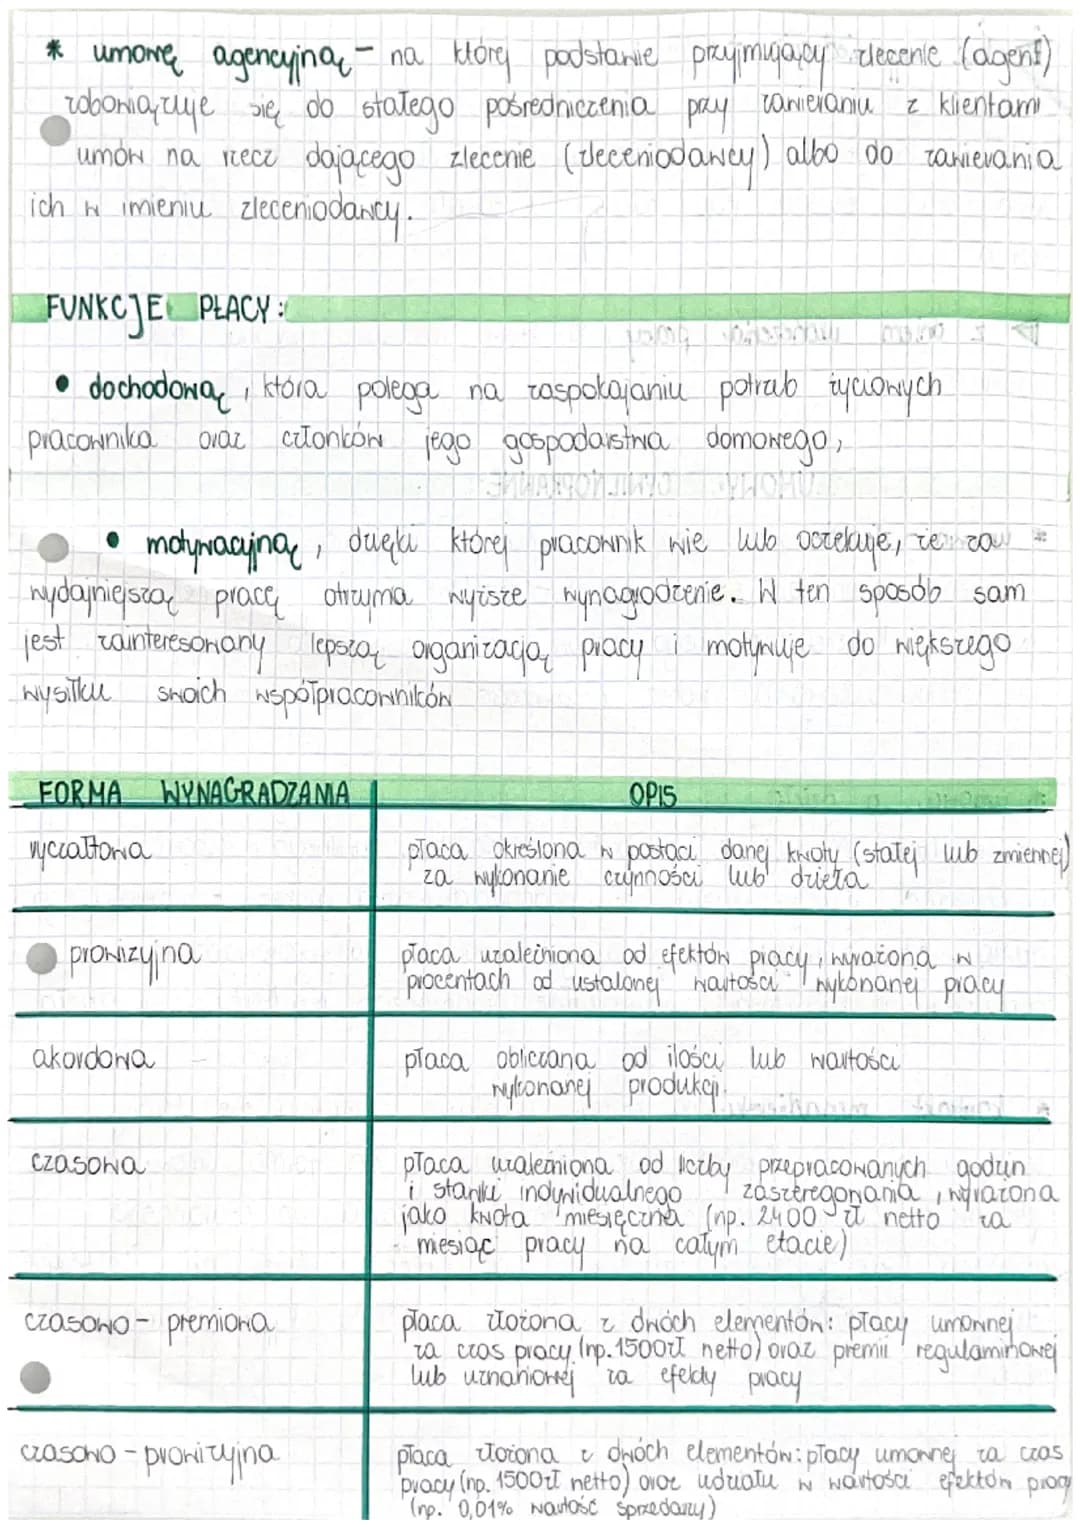 * umowę agencyjną - na której podstawie przyjmujący zlecenie (agent)
zobowiązuje się do stałego pośredniczenia przy zawieraniu z klientami
umów na rzecz dającego zlecenie (zleceniodawcy) albo do zawierania
ich w imieniu zleceniodawcy.
FUNKCJE PŁACY:
• dochodową, która polega na zaspokajaniu potrzeb życiowych
pracownika oraz członków jego gospodarstwa domowego,
• motywacyjną, dzięki której pracownik wie lub oczekuje, że za
wydajniejszą pracę otrzyma wyższe wynagrodzenie. W ten sposób sam
jest zainteresowany lepszą organizacją pracy i motywuje do większego
wysiłku swoich współpracowników
FORMA WYNAGRADZANIA OPIS
ryczałtowa
płaca określona w postaci danej kwoty (stałej lub zmiennej)
za wykonanie czynności lub dzieła
prowizyjna
płaca uzależniona od efektów pracy, wyrażona w
procentach od ustalonej wartości wykonanej pracy
akordowa
płaca obliczana od ilości lub wartości
wykonanej produkcji.
czasowa
płaca uzależniona od liczby przepracowanych godzin
i stawki indywidualnego zaszeregowania, wyrażona
jako kwota miesięczna (np. 2400 zł netto za
miesiąc pracy na całym etacie)
czasowo - premiowa
płaca złożona z dwóch elementów: płacy umownej
za czas pracy (np. 1500zł netto) oraz premii regulaminowej
lub uznaniowej za efekty pracy
czasowo - prowizyjna
płaca złożona z dwóch elementów: płacy umownej za czas
pracy (np. 1500zł netto) oraz udziału w wartości efektów pracy
(np. 0,01% wartość sprzedaży)